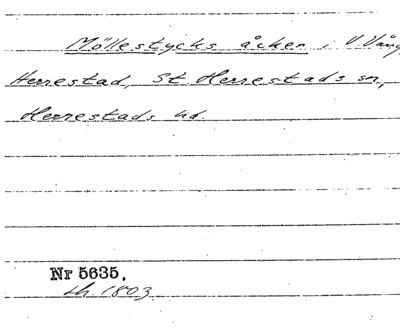 Möllestycks åcker i V. Vång
Herrestad, St. Herrestads sn,
Herrestads hd.
Nr 5635.
lh. 1803